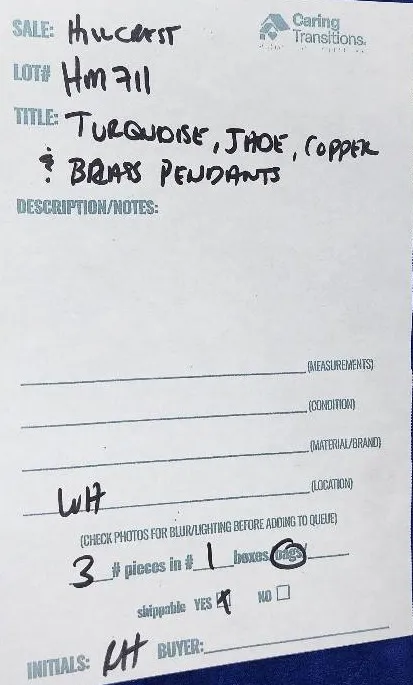 SALE: HILLCREST
Caring Transitions.
LOT# HM711
TITLE: TURQUOISE, JADE, COPPER
& BRASS PENDANTS
DESCRIPTION/NOTES:
(MEASUREMENTS)
(CONDITION)
(MATERIAL/BRAND)
WH (LOCATION)
(CHECK PHOTOS FOR BLUR/LIGHTING BEFORE ADDING TO QUEUE)
3 # pieces in # 1 boxes/bags/
shippable YES NO
INITIALS: RH BUYER: